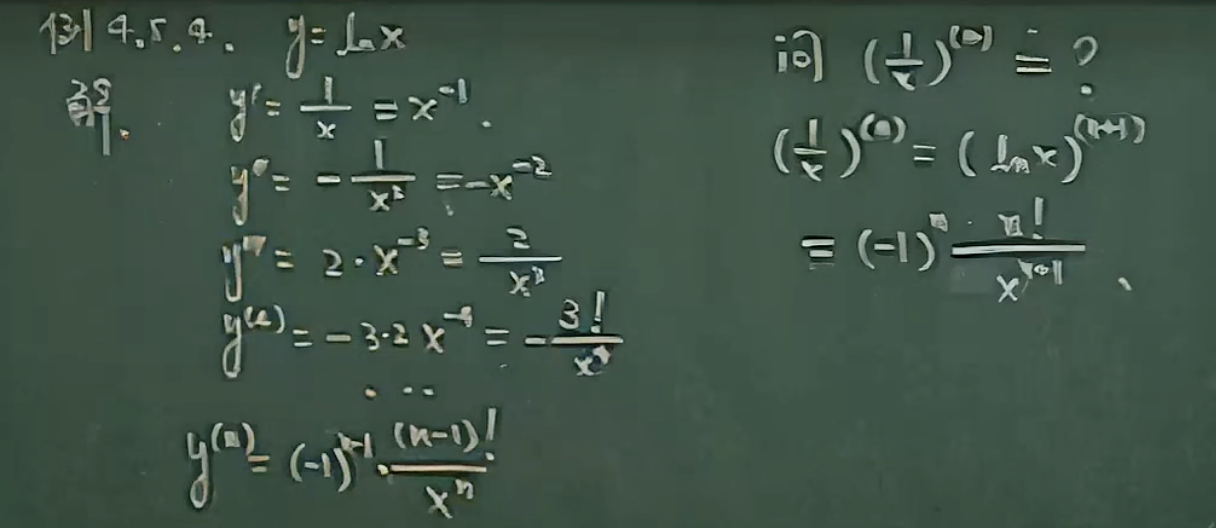 例 4.5.4. y = ln x
解. y' = 1/x = x^{-1}.
y'' = -1/x^2 = -x^{-2}
y''' = 2·x^{-3} = 2/x^3
y^{(4)} = -3·2 x^{-4} = -3!/x^4
...
y^{(n)} = (-1)^{n-1} · (n-1)!/x^n
问 (1/x)^{(n)} = ?
(1/x)^{(n)} = (ln x)^{(n+1)}
= (-1)^n · n!/x^{n+1}.